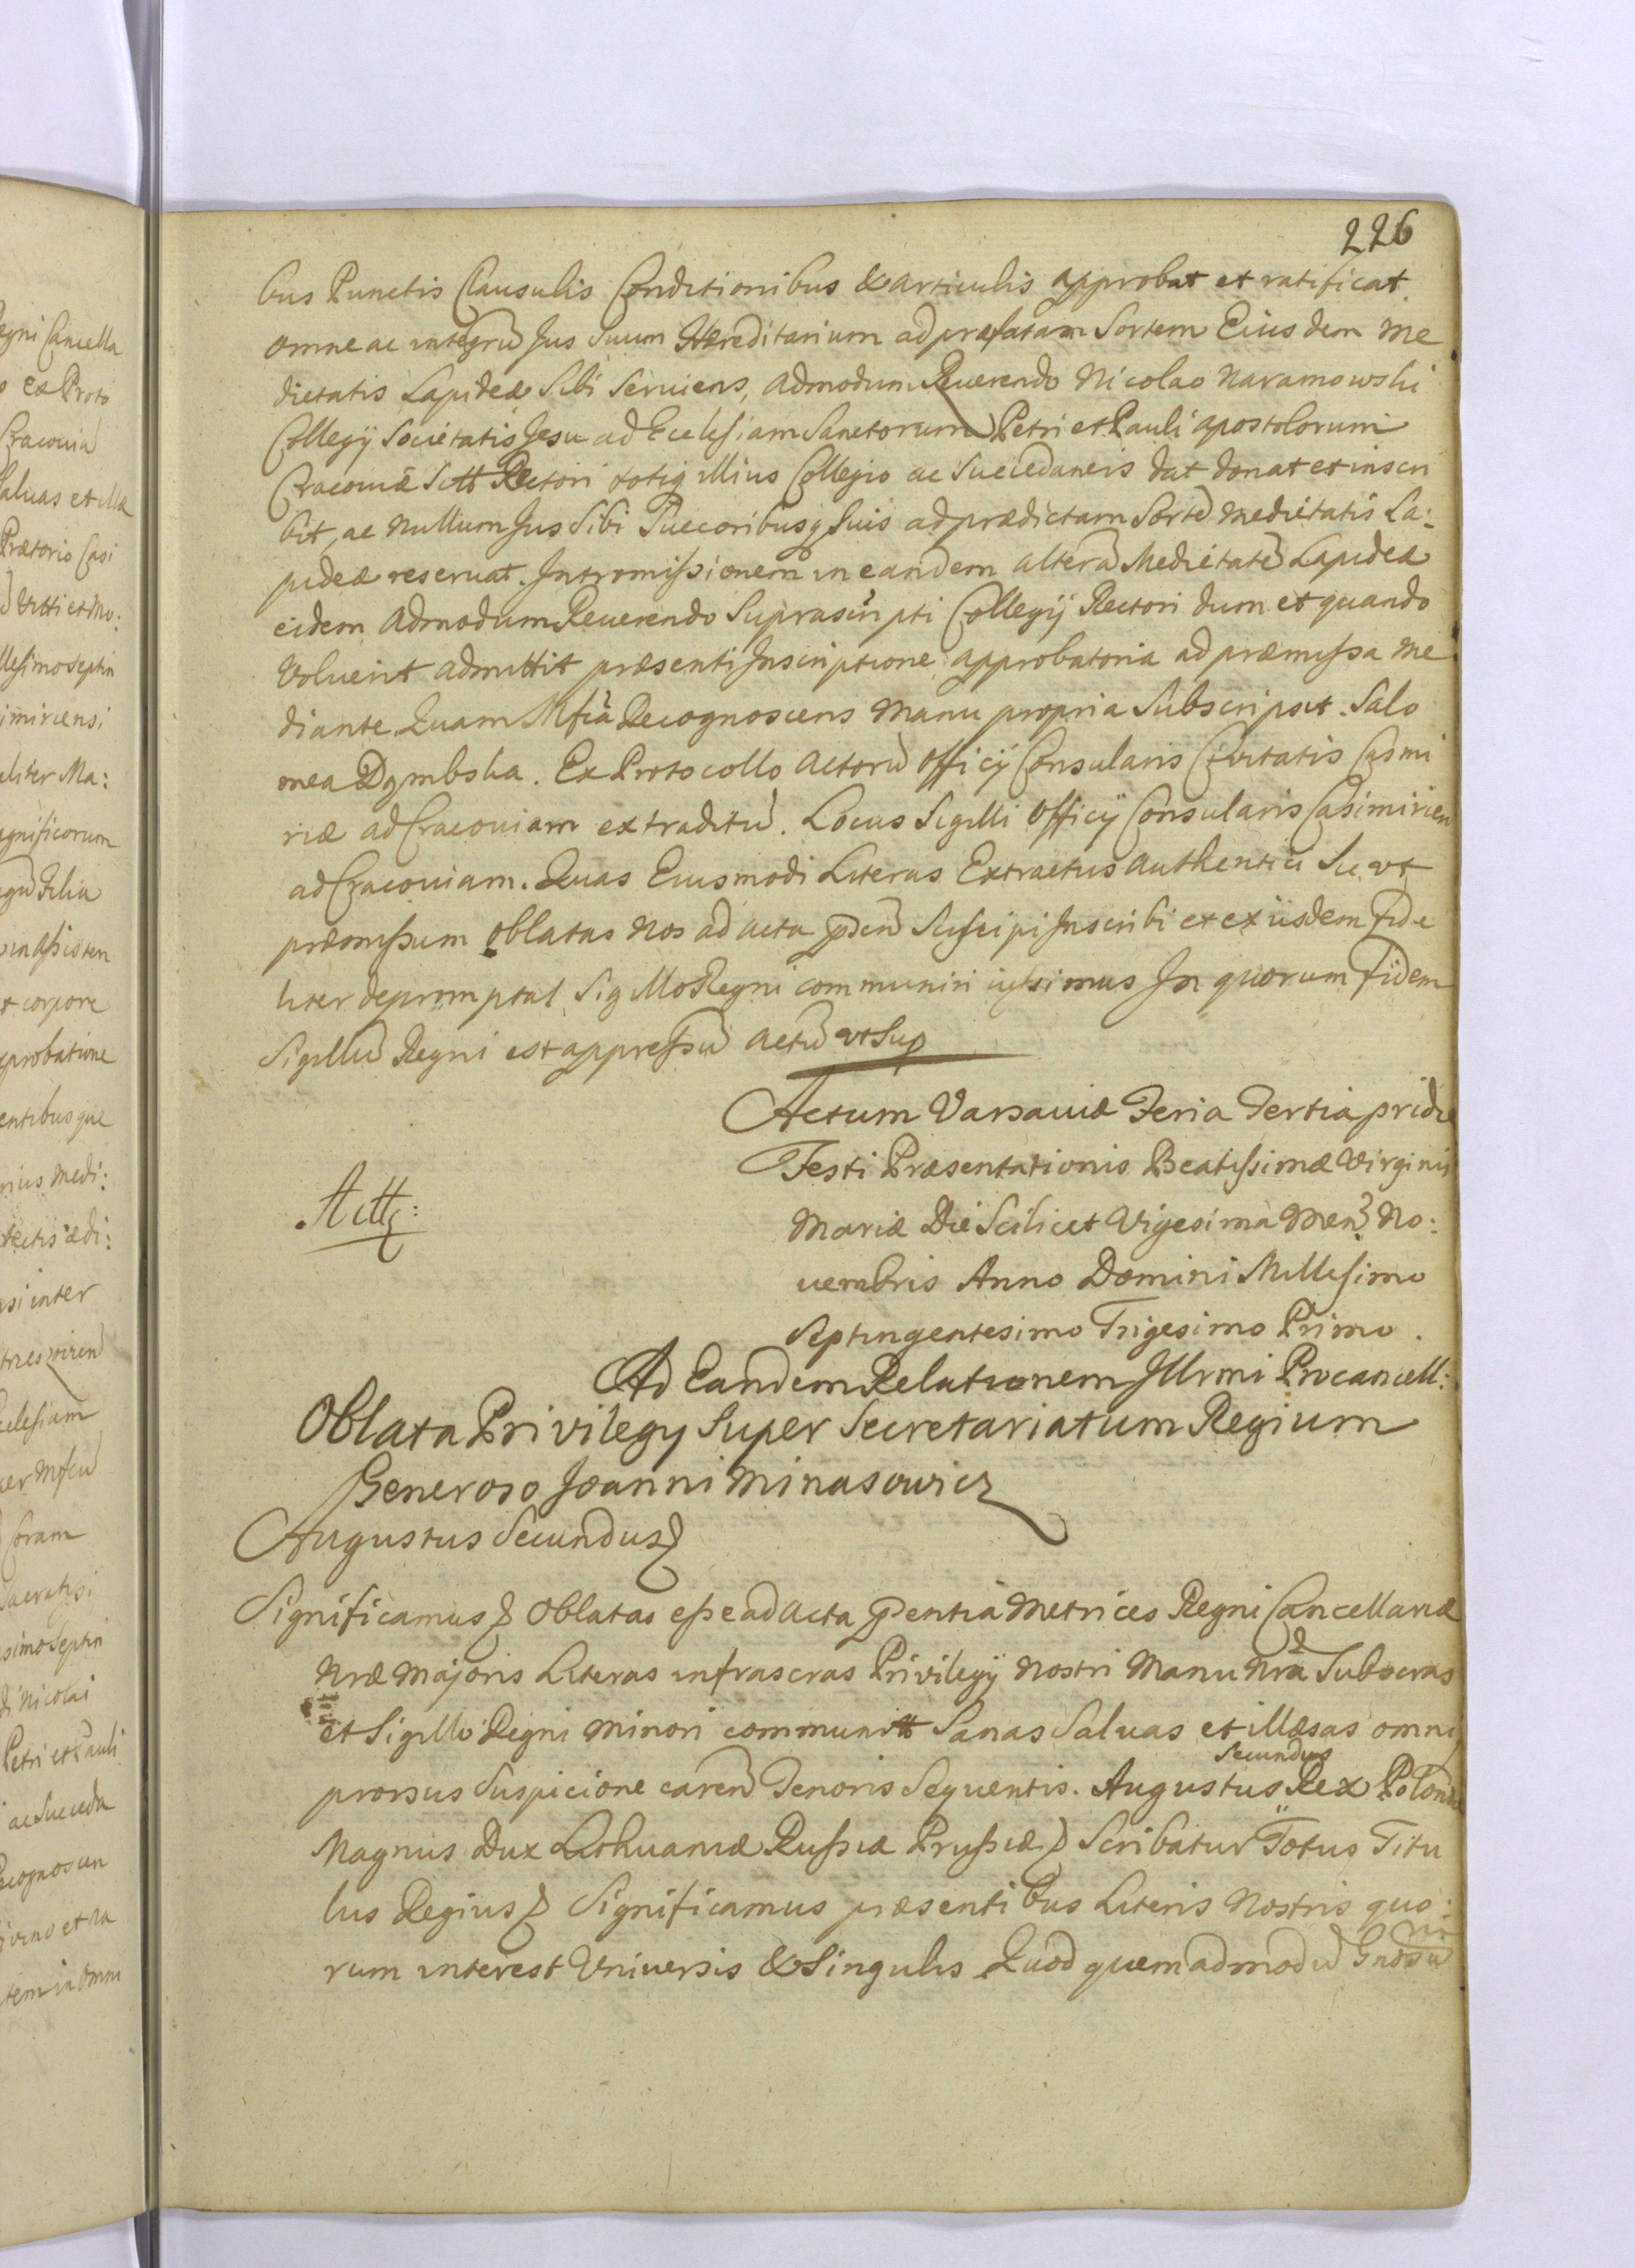 226
bus Punctis Clausulis Conditionibus & articulis approbat et ratificat.
omne ac integrũ Jus Suum Hæreditarium ad præfatam Sortem Eiusdem Me
dietatis Lapideæ Sibi Seruiens, admodum Reuerendo Nicolao Naramowski
Collegÿ Societatis Jesu ad Ecclesiam Sanctorum Petri et Pauli apostolorum
Cracouiæ Rectori totiq illius Collegio ac Succedaneis dat donat et inscri
bit, ac nullum Jus Sibi Succoribusq Suis ad prædictam Sortẽ medietatis La:
pideæ reseruat. Intromissionem in eandem alterã Medietatẽ Lapideæ
eidem admodum Reuerendo Suprascripti Collegÿ Rectori dum et quando
Voluerit admittit præsenti Inscriptione approbatoria ad præmissa me
diante. Quam Mfca Recognoscens Manu propria Subscripsit. Salo
mea Dęmbska. Ex Protocollo actorũ officÿ Consularis Ciuitatis Casimi
riæ ad Cracouiam extraditũ. Locus Sigilli officÿ Consularis Casimirien
ad Cracouiam. Quas Eiusmodi Literas Extractus authentici Sic vt
præmissum oblatas Nos ad acta Suscipi Inscribi et ex iisdem fide
liter Sigillo Regni communiri iussimus In quorum fidem
Sigillũ Regni est appressũ actũ vt Sup
Actum Varsauiæ Feria Tertia pridie
Festi Præsentationis Beatissimæ Virginis
Mariæ Die Scilicet Vigesima Men No:
uembris Anno Domini Millesimo
Septingentesimo Trigesimo Primo.
Ad Eandem Relationem Illrmi Procancell:
Oblata Privilegy Super Secretariatum Regium
Generoso Joanni Minasowicz
Augustus Secundus
Significamus Oblatas esse ad acta pentia Metrices Regni Cancellariæ
Nræ Majoris Literas infrascras Privilegÿ Nostri Manu Nra Subscras
et Sigillo Regni Minori communitt Sanas Saluas et illæsas omniq
Secundus
prorsus Suspicione carẽn Tenoris Sequentis. Augustus Rex Poloniæ
Magnus Dux Lithuaniæ Russiæ Prussiæ Scribatur Totus Titu
lus Regius Significamus præsentibus Literis Nostris quo:
rum interest Vniuersis & Singulis Quod quemadmodũ